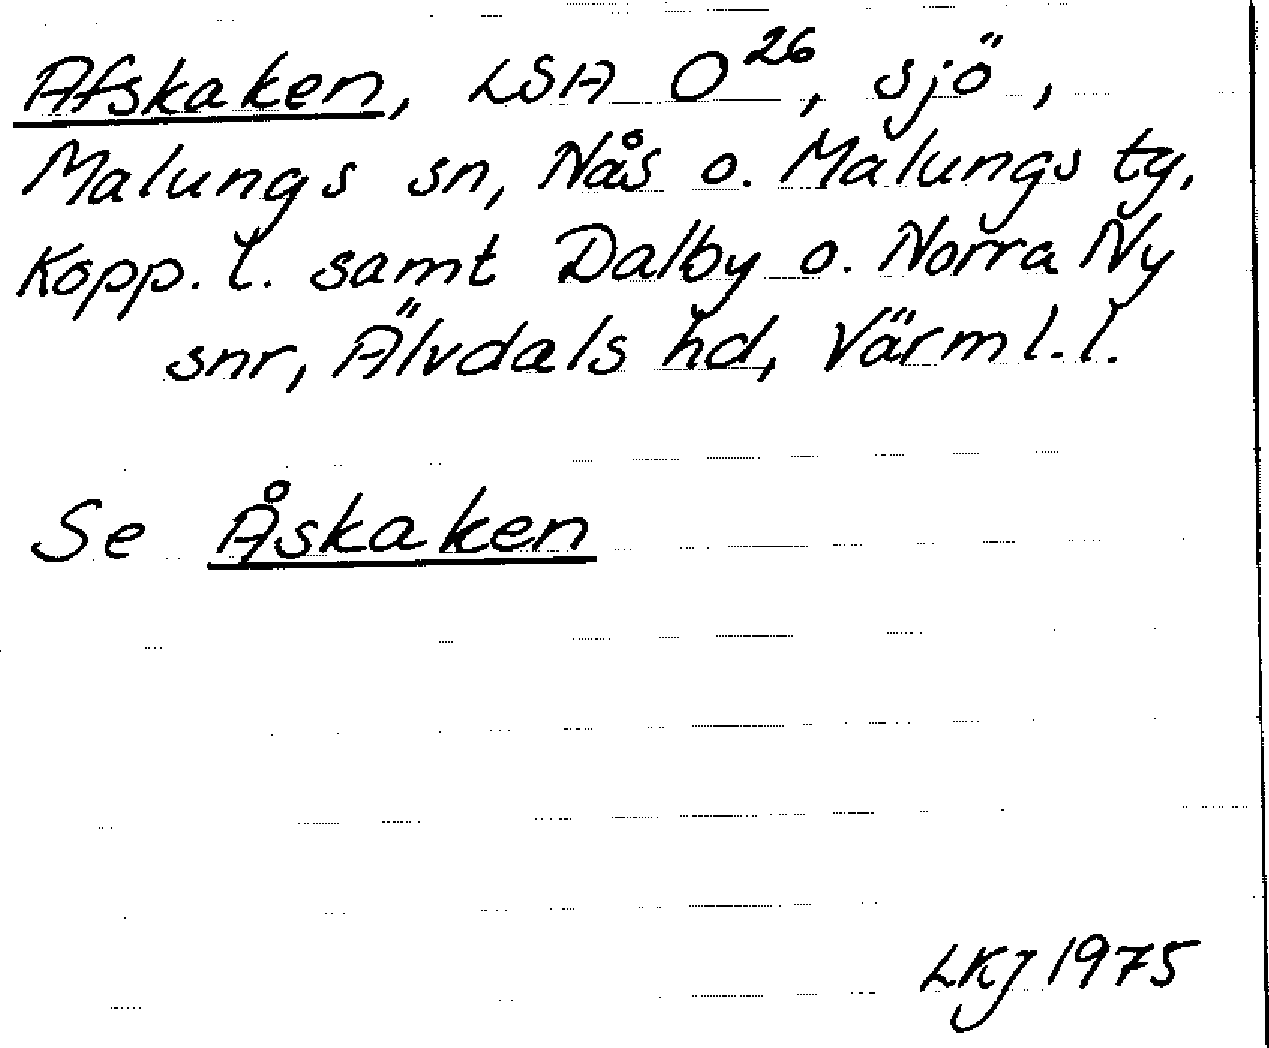 Afskaken, LSA O²⁶, sjö,
Malungs sn, Nås o. Malungs tg,
Kopp. l. samt Dalby o. Norra Ny
snr, Älvdals hd, Värml. l.
Se Åskaken
LKJ 1975